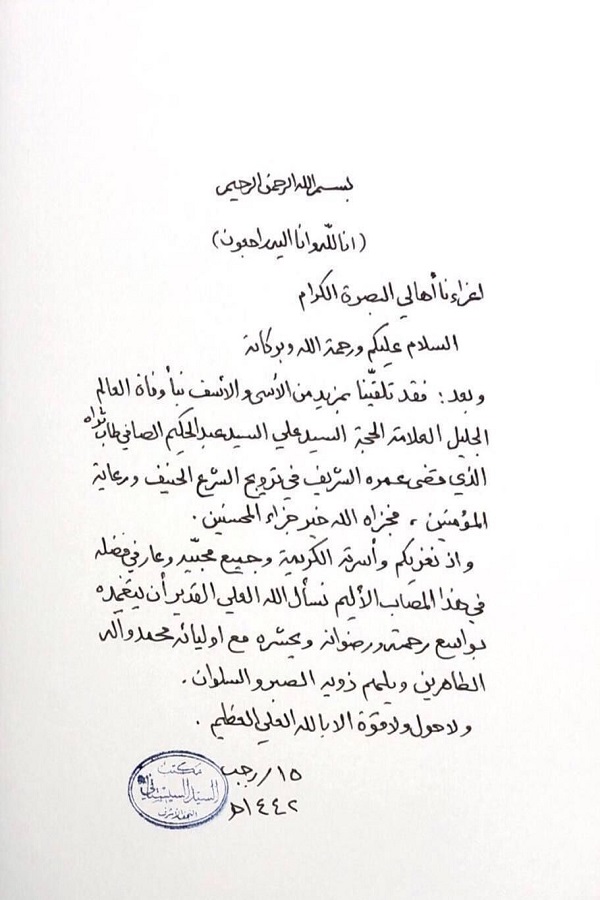 بسم الله الرحمن الرحيم
(انا لله وانا اليه راجعون)
اعزاءنا أهالي البصرة الكرام
السلام عليكم ورحمة الله وبركاته
وبعد: فقد تلقّينا بمزيد من الأسى والأسف نبأ وفاة العالم
الجليل العلامة الحجة السيد علي السيد عبد الحكيم الصافي طاب ثراه
الذي قضى عمره الشريف في ترويج الشرع الحنيف ورعاية
المؤمنين، فجزاه الله خير جزاء المحسنين.
واذ نعزيكم وأسرته الكريمة وجميع محبّيه وعارفي فضله
في هذا المصاب الأليم نسأل الله العلي القدير أن يتغمده
بواسع رحمته ورضوانه ويحشره مع اوليائه محمد وآله
الطاهرين ويلهم ذويه الصبر والسلوان.
ولا حول ولا قوة الا بالله العلي العظيم.
١٥/رجب
١٤٤٢هـ
مكتب
السيد السيستاني
النجف الأشرف